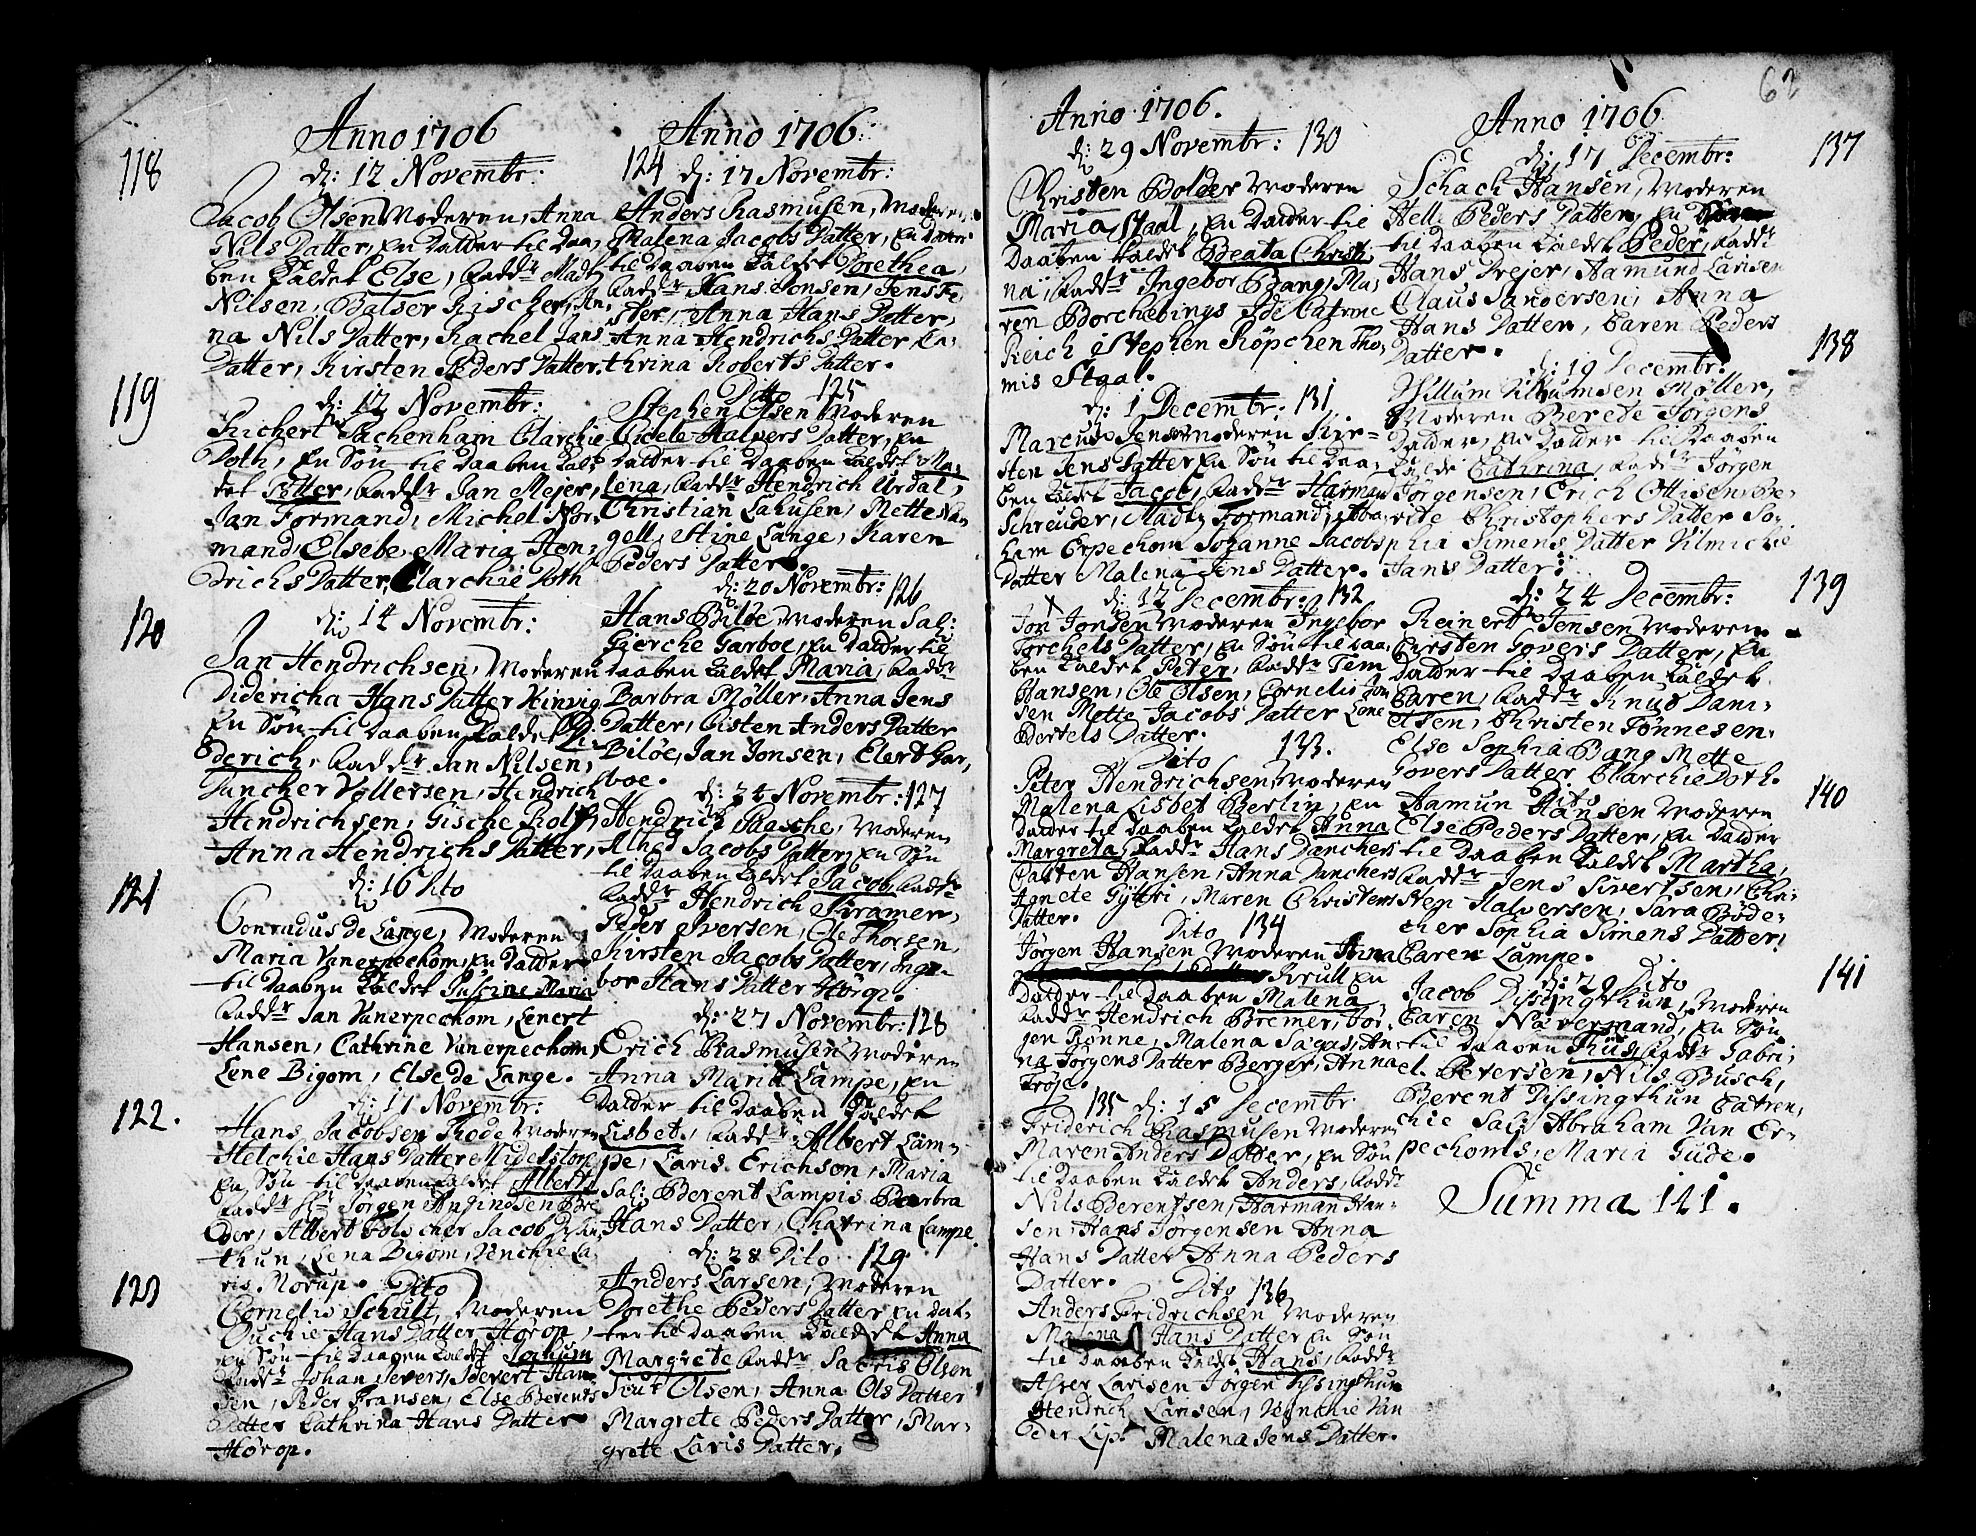 62
Anno 1706
118
d: 12 Novembr:
Jacob Olsen Moderen, Anna
Nils Datter, En Datter til Daa,
ben Kaldet Else, Fadd:r Mads
Nilsen, Baltser Fischer, An,
na Nils Datter, Rachel Jans
Datter, Kirsten Peders Datter.
119
d: 12 Novembr:
Richert Pachenham Clarchie
Doth, En Søn til Daaben Kal,
det Petter, Fadd:r Jan Mejer,
Jan Formand, Michel Nor,
mand, Elsebe Maria Hen,
drichs Datter, Clarchie Doth
120
d: 14 Novembr:
Jan Hendrichsen, Moderen
Didericha Hans Datter Kinvig
En Søn til Daaben Kaldet Di,
derich, Fadd:r Jan Nilsen,
Duncher Vollersen, Hendrich
Hendrichsen, Gische Rolfs,
Anna Hendrichs Datter,
121
d: 16 Dito
Conradus de Lange, Moderen
Maria Vanerpechom, En Datter
til Daaben Kaldet Maria
Fadd:r Jan Vanerpechom, Lenert
Hansen, Cathrine Vanerpechom,
Lene Bigom, Else de Lange.
122.
d: 17 Novembr:
Hans Jacobsen Rode Moderen
Helchie Hans Datter
En Søn til Daaben Kaldet Albert
Fadd:r Jørgen
Albert Jacob
thun, Lena Bigom, Venchie La
ris Morup.
123
Dito
Cornelis Schult, Moderen
Hans Datter Hörop,
en Søn til Daaben Kaldet Jochum
Fadd:r Johan Severs, Sievert Han,
sen, Peder Fransen, Else Berents
Datter Cathrina Hans Datter
Hörop.
Anno 1706
124 d: 17 Novembr:
Anders Rasmusen, Moderen
Malena Jacobs Datter, En Datter
til Daaben Kaldet Dorethea,
Fadd:r Hans Jonsen, Jens Pe,
ster, Anna Hans Datter,
Anna Hendrichs Datter Ca,
thrina Roberts Datter.
Ditto 125
Stephen Olsen Moderen
Cidele Halvers Datter, En
Datter til Daaben Kaldet Ma,
lena, Fadd:r Hendrich Urdal,
Christian Lahusen, Mette Na,
gell, Stine Lange, Karen
Peders Datter.
d: 20 Novembr: 126
Hans Biløe, Moderen Sal:
Gierche Garboe, En Datter til
Daaben Kaldet Maria, Fadd:r
Barbra Möller, Anna Jens
Datter, Cisten Anders Datter
Biløe, Jan Jonsen, Elert Gar,
boe.
d: 24 Novembr: 127
Hendrich Paasche, Moderen
Alhed Jacobs Datter, En Søn
til Daaben Kaldet Jacob Fadd:r
Fadd:r Hendrich Kramer,
Peder Iversen, Ole Thorsen,
Kirsten Jacobs Datter, Inge,
bor Hans Datter Hörop.
d: 27 Novembr: 128
Erich Rasmusen Moderen
Anna Maria Lampe, En
Datter til Daaben Kaldet
Lisbet, Fadd:r Albert Lam,
pe, Laris Erichson, Maria
Sal: Berent Lampis Barbra
Hans Datter, Chatrina Lampe.
d: 28 Dito 129
Anders Larsen, Moderen
Dorethe Peders Datter En Dat,
ter til Daaben Kaldet Anna
Margrete Fadd:r Olsen
Siur Olsen, Anna Ols Datter
Margrete Peders Datter, Mar,
grete Laris Datter.
Anno 1706.
d: 29 Novembr: 130
Christen Bolder Moderen
Maria Staal, En Datter til
Daaben Kaldet Beata Christi,
na, Fadd:r Ingebor Bang, Ma,
ren Borchebings Ide Catrine
Reich Stephen Röpchen Tho,
mis Staal.
d: 1 Decembr: 131
Marcus Jensen Moderen Kir=
sten Jens Datter En Søn til Daa,
ben Kaldet Jacob, Fadd:r Harman
Schreuder, Mads Formand, Abra,
ham Erpechom Johanne Jacobs
Datter Malena Jens Datter.
x d: 12 Decembr: 132
Jon Jonsen Moderen Ingebor
Torchels Datter, En Søn til Daa,
ben Kaldet Peter, Fadd:r Tem
Hansen, Ole Olsen, Cornelis Jon
sen Mette Jacobs Datter Lone
Bertels Datter.
Dito 133.
Peter Hendrichsen, Moderen
Malena Lisbet Berlin, En
Datter til Daaben Kaldet Anna
Margreta, Fadd:r Hans Danchers
Carsten Hansen, Anna Danchers
Agnete Gyttri, Maren Christens
Datter.
Dito 134
Jørgen Hansen Moderen Anna
Krull En
Datter til Daaben Malena
Fadd:r Hendrich Bremer, Jør,
gen Rönne, Malena Sagas, An,
na Jørgens Datter Berger, Anna
Tröje.
135 d: 15 Decembr.
Friderich Rasmusen Moderen
Maren Anders Datter, En Søn
til Daaben Kaldet Anders, Fadd:r
Nils Berentsen, Harman Han,
sen, Hans Jørgensen Anna
Hans Datter Anna Peders
Datter.
Dito 136
Anders Fridrichsen Moderen
Malena Hans Datter En Søn
til Daaben Kaldet Hans, Fadd:r
Asver Larisen Jørgen Dissingthun
Hendrich Larisen, Venchie Van
der Lip. Malena Jens Datter.
Anno 1706
137
d: 17 Decembr:
Schach Hansen, Moderen
Hell: Peders Datter, En
til Daaben Kaldet Peder, Fadd:r
Hans Drejer, Aamund Larisen
Claus Sandersen, Anna
Hans Datter, Caren Peders
Datter.
138
d: 19 Decembr:
Willum Villumsen Møller,
Moderen Berete Jørgens
Datter, En Datter til Daaben
Kaldet Cathrina, Fadd:r Jørgen
Jørgensen, Erich Ottisen, Be,
rite Christophers Datter So,
phia Simens Datter Vilmichie
Jans Datter.
139
d: 24 Decembr:
Reinert Jensen Moderen
Kirsten Govers Datter, En
Datter til Daaben Kaldet
Caren, Fadd:r Knud Dani,
elsen, Christen Tønnesen,
Else Sophia Bang Mette
Govers Datter, Clarchie Doth.
140
Dito
Aamun Hansen Moderen
Else Peders Datter, En Datter
til Daaben Kaldet Martha,
Fadd:r Jens Sivertsen, Chri,
sten Halversen, Sara Böde,
cher Sophia Simens Datter,
Caren Lampe.
141
d: 29 Dito
Jacob Dissingthun, Moderen
Caren Nævermand, En Søn
til Daaben Fadd:r Gabri,
el Petersen, Nils Busch,
Berent Dissingthun Catren,
chie Sal: Abraham Van Er,
pechoms, Maria Gude.
Summa 141.